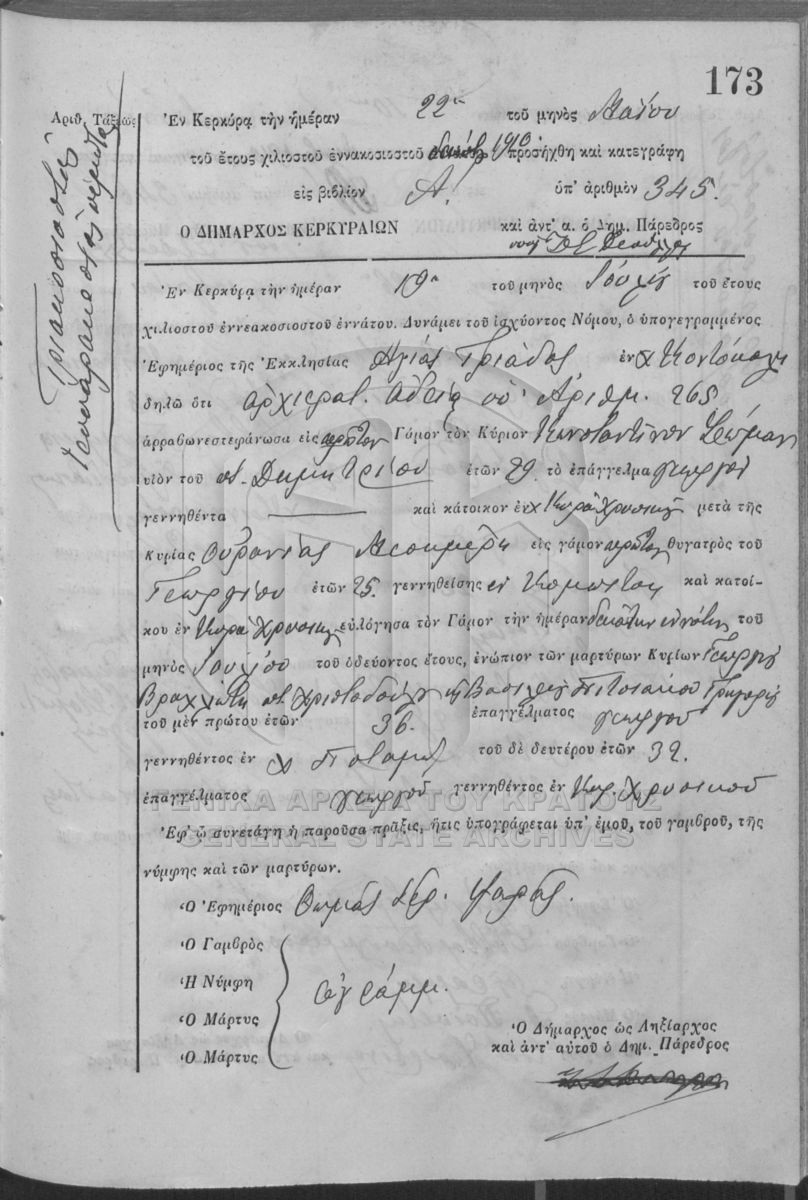 173
Ἀριθ. Τάξεως
Τριακοσιοστὸς
τεσσαρακοστὸς πέμπτος
Ἐν Κερκύρᾳ τὴν ἡμέραν 22αν τοῦ μηνὸς Μαΐου
τοῦ ἔτους χιλιοστοῦ ἐννακοσιοστοῦ 1910. προσήχθη καὶ κατεγράφη
εἰς βιβλίον Α! ὑπ' ἀριθμὸν 345.
Ο ΔΗΜΑΡΧΟΣ ΚΕΡΚΥΡΑΙΩΝ καὶ ἀντ' α. ὁ Δημ. Πάρεδρος
Ἐν Κερκύρᾳ τὴν ἡμέραν 19η τοῦ μηνὸς Ἰουλίου τοῦ ἔτους
χιλιοστοῦ ἐννεακοσιοστοῦ ἐννάτου. Δυνάμει τοῦ ἰσχύοντος Νόμου, ὁ ὑπογεγραμμένος
Ἐφημέριος τῆς Ἐκκλησίας Ἁγίας Τριάδος ἐν χ Κοντόκαλι
δηλῶ ὅτι ἀρχιερατ. ἀδείᾳ ὑπ' Ἀριθμ. 265
ἀρραβωνεστεφάνωσα εἰς πρῶτον Γάμον τὸν Κύριον Κωνσταντῖνον
υἱὸν τοῦ ποτ. Δημητρίου ἐτῶν 29 τὸ ἐπάγγελμα γεωργὸν
γεννηθέντα — καὶ κάτοικον ἐν χ Καρὰ Χρυσικοῦ μετὰ τῆς
Κυρίας Οὐρανίας εἰς γάμον πρῶτον θυγατρὸς τοῦ
Γεωργίου ἐτῶν 25. γεννηθείσης ἐν καὶ κατοί-
κου ἐν Καρὰ Χρυσικοῦ εὐλόγησα τὸν Γάμον τὴν ἡμέραν δεκάτην ἐννάτην τοῦ
μηνὸς Ἰουλίου τοῦ ὁδεύοντος ἔτους, ἐνώπιον τῶν μαρτύρων Κυρίων Γεωργίου
Βραχλιώτη ποτ. Χριστοδούλου καὶ Βασιλείου Πιτσιλικου Γρηγορίου
τοῦ μὲν πρώτου ἐτῶν 36. ἐπαγγέλματος γεωργοῦ
γεννηθέντος ἐν χ Ποταμῷ τοῦ δὲ δευτέρου ἐτῶν 32.
ἐπαγγέλματος γεωργοῦ γεννηθέντος ἐν Καρ. Χρυσικοῦ
ΓΕΝΙΚΑ ΑΡΧΕΙΑ ΤΟΥ ΚΡΑΤΟΥΣ
Ἐφ' ᾧ συνετάγη ἡ παροῦσα πρᾶξις, ἥτις ὑπογράφεται ὑπ' ἐμοῦ, τοῦ γαμβροῦ, τῆς
GENERAL STATE ARCHIVES
νύμφης καὶ τῶν μαρτύρων.
Ὁ Ἐφημέριος Θωμᾶς Ἱερ. Ψαρᾶς.
Ὁ Γαμβρὸς
Ἡ Νύμφη
ἀγράμμ.
Ὁ Μάρτυς
Ὁ Μάρτυς
Ὁ Δήμαρχος ὡς Ληξίαρχος
καὶ ἀντ' αὐτοῦ ὁ Δημ. Πάρεδρος